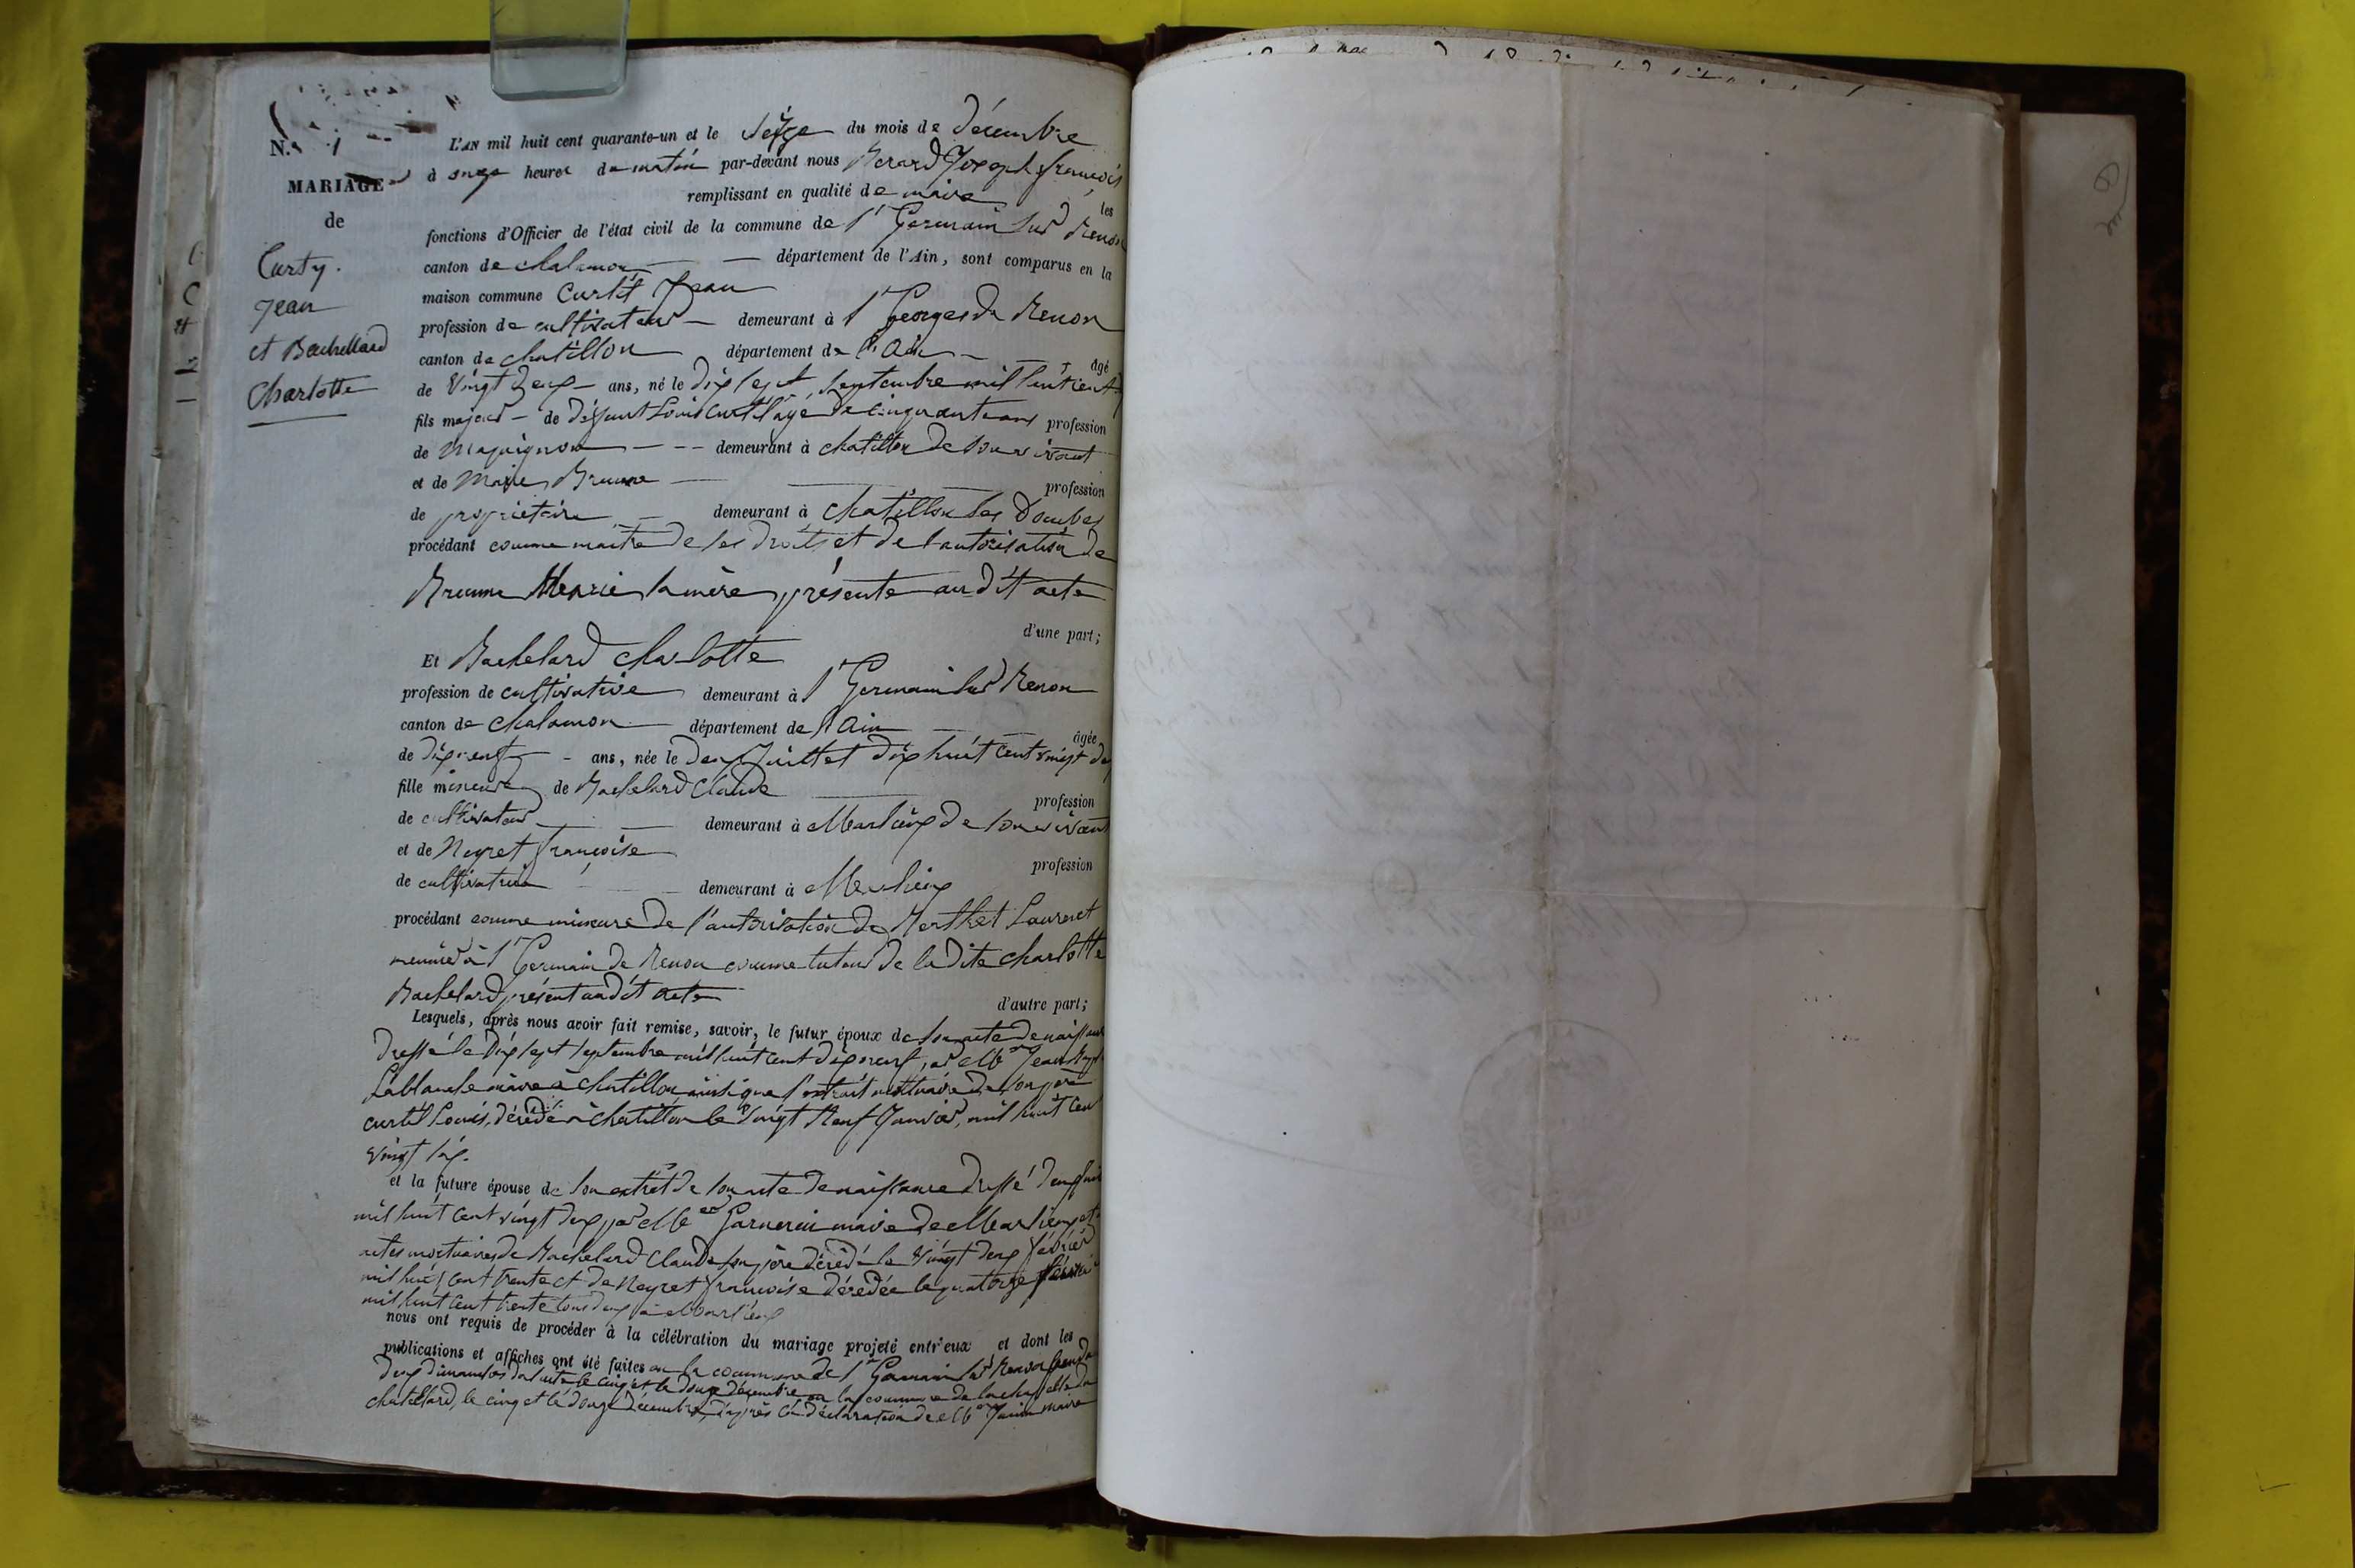 N.
MARIAGE
de
Curty.
Jean
et Bachellard
Charlotte
L'AN mil huit cent quarante-un et le seize du mois de décembre
à onze heures du matin par-devant nous Berard Joseph françois
remplissant en qualité de maire les
fonctions d'Officier de l'état civil de la commune de St Germain sur Renon
canton de chalamon département de l'Ain, sont comparus en la
maison commune Curtil Jean
profession de cultivateur demeurant à St Georges du Renon
canton de chatillon département de l'Ain âgé
de vingt deux ans, né le dix sept septembre mil huit cent
fils majeur de défunt Louis Curtil âgé de cinquante ans profession
de Maquignon demeurant à chatillon de son vivant
et de Marie Brunne profession
de propriétaire demeurant à chatillon les Dombes
procédant comme maitre de ses droits et de l'autorisation de
Brunne Marie sa mère présente au dit acte
d'une part;
Et Bachelard charlotte
profession de cultivatrice demeurant à St Germain sur Renon
canton de chalamon département de l'Ain âgée
de dix neuf ans, née le deux Juillet dix huit cent vingt deux
fille mineure de Bachelard Claude profession
de cultivateur demeurant à Marlieux de son vivant
et de Neyret françoise profession
de cultivatrice demeurant à Marlieux
procédant comme mineure de l'autorisation de Berthet Laurent
meunier à St Germain de Renon comme tuteur de la dite charlotte
Bachelard présent au dit acte d'autre part;
Lesquels, après nous avoir fait remise, savoir, le futur époux de son acte de naissance
dressé le dix sept septembre mil huit cent dix neuf, par Mr Jean
Lablanche maire à chatillon ainsi que l'extrait mortuaire de son père
curtil Louis, décédé à chatillon le vingt neuf Janvier, mil huit cent
vingt six.
et la future épouse de son extrèt de son acte de naissance dressé deux Juillet
mil huit cent vingt deux par Mr Garnerin maire de Marlieux et
actes mortuaires de Bachelard Claude son père décédé le vingt deux février
mil huit cent trente et de Neyret françoise décédée le quatorze février
mil huit cent trente tous deux à Marlieux
nous ont requis de procéder à la célébration du mariage projeté entr'eux et dont les
publications et affiches ont été faites en la commune de St Germain sur Renon
deux dimanches de suite le cinq et le douze décembre en la commune de la chapelle du
chatellard, le cinq et le douze décembre, d'après la déclaration de Mr Janin maire